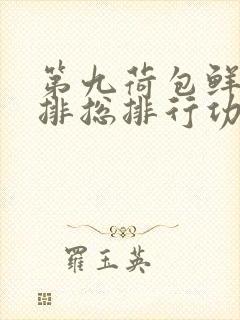 第九荷包鲜
排总排行功
羅玉英